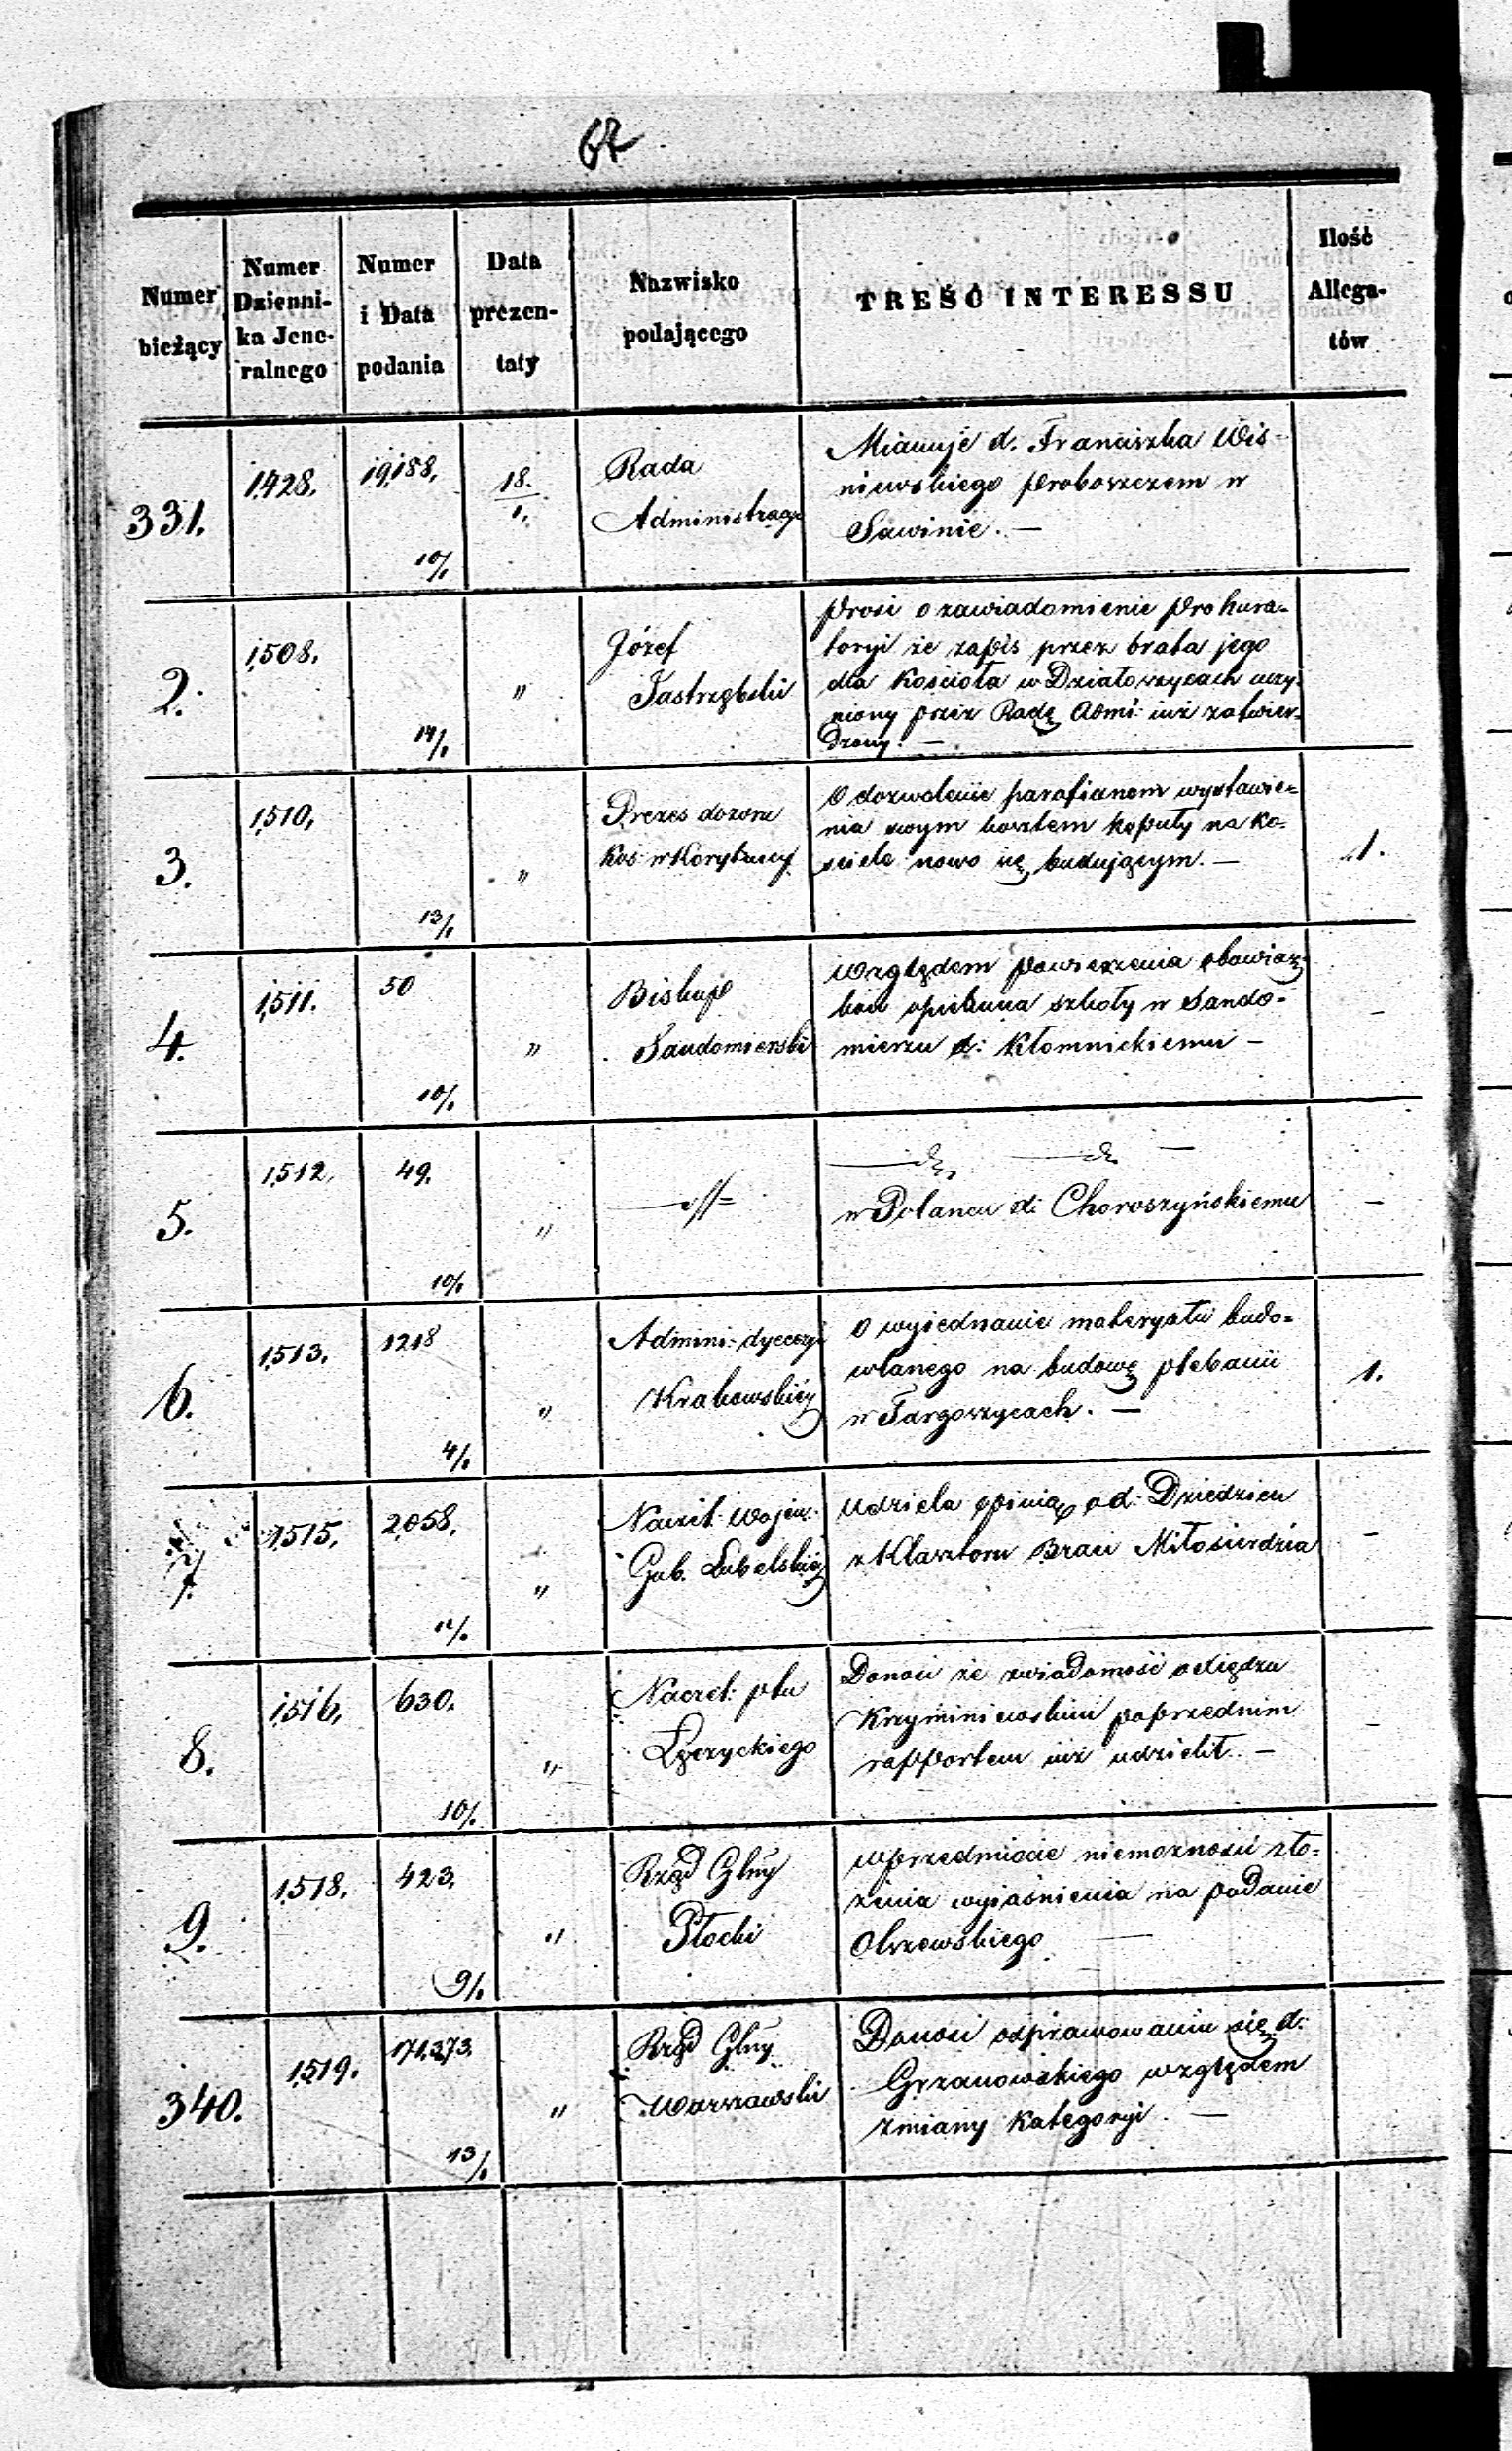 67
Numer
bieżący
Numer
Dzienni-
ka Jene-
ralnego
Numer
i Data
podania
Data
prezen-
taty
Nazwisko
podającego
TREŚĆ INTERESSU
Ilość
Allega-
tów
331.
1,428.
19,188.
10/1
18.
1.
Rada
Administracyi
Mianuje x. Franciszka Wiś-
niewskiego Proboszczem w
Sawinie. —
2.
1,508.
14/1
"
Józef
Jastrzębski
Prosi o zawiadomienie Prokura-
toryi że zapis przez brata jego
dla Kościoła w Działoszycach uczy-
niony przez Radę Admi: już zatwier-
dzony. —
3.
1,510,
13/1
"
Prezes dozoru
Koś: w Korytnicy
O dozwolenie parafianom wystawie-
nia swym kosztem kopuły na ko-
ściele nowo się budującym. —
1.
4.
1,511.
50
10/1
"
Biskup
Sandomierski
Względem powierzenia obowiąz-
ków opiekuna szkoły w Sando-
mierzu x: Kłomnickiemu —
–
5.
1,512.
49.
10/1
"
—//=
—dº —dº —
w Połańcu x: Choroszyńskiemu
–
6.
1,513.
1218
4/1
"
Admini: dyecezyi
Krakowskiéj
O wyjednanie materyału budo-
wlanego na budowę plebanii
w Targoszycach. —
1.
7.
1,515.
2,058.
11/1
"
Naczel: Wojen:
Gub. Lubelskiéj
Udziela opinią o x: Dziedzicu
z Klasztoru Braci Miłosierdzia
–
8.
1,516.
630.
10/1
"
Naczel: ptu
Łęczyckiego
Donosi że wiadomość o Xiędzu
Krzyminiewskim poprzednim
rapportem już udzielił. —
–
9.
1,518.
423.
9/1
"
Rząd Glny
Płocki
W przedmiocie niemożności zło-
żenia wyjaśnienia na podanie
Olszewskiego —
340.
1,519.
171,373.
13/1
"
Rząd Glny
Warszawski
Donosi o sprawowaniu się x:
Grzanowskiego względem
zmiany kategoryi. —